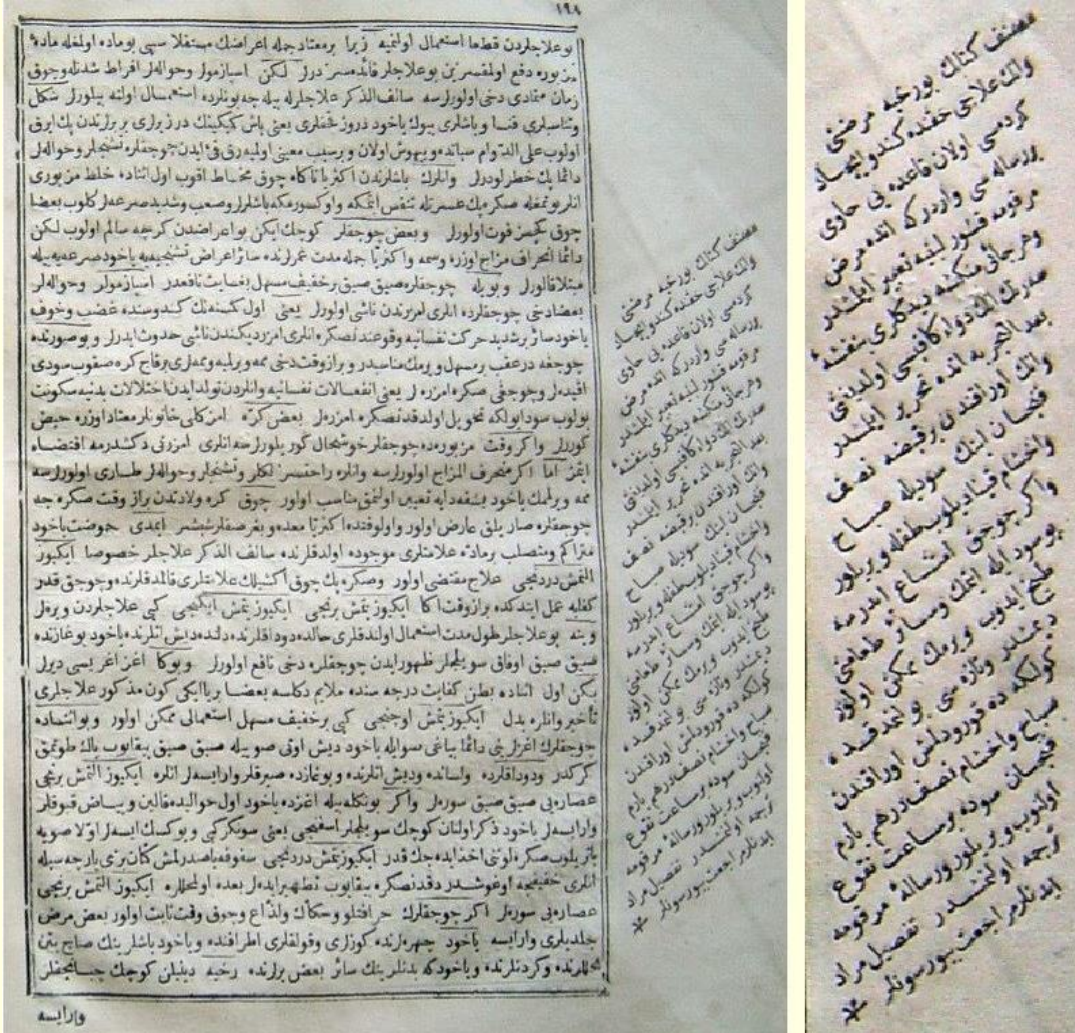 ١٩٨
بو علاجلردن قطعا استعمال اولنميه زيرا بر معتاد جمله اعراضك مستقلا سببى بو ماده اولمغله ماده
مزبوره دفع اولنمقسزين بو علاجلر فائده سز درلر لكن اسپازمولر وحواله لر افراط شدتله وچوق
زمان ممتد دخى اولورلرسه سالف الذكر علاجلرله بيله جه بونلرده استعمال اولنه بيلورلر شكل
وتناسبلرى فنا وباشلرى بيوك ياخود دروز قحفلرى يعنى باش كميكينك درزلرى بر برلرندن پك ايرق
اولوب على الدوام سباتده وبيهوش اولان وبر سبب معينى اوليه رق قئ ايدن چوجقلره تشنجلر وحواله لر
دائما پك خطرلودرلر وانلرك باشلرندن اكثريا ناكاه چوق مخاط اقوب اول اثناده خلط مزبورى
انلر يوتمغله صكره پك عسرتله تنفس ايتمكه واوكسورمكه باشلرلر وصعب وشديد صرعه لر كلوب بعضا
چوق كچمسن فوت اولورلر وبعض چوجقلر كوچك ايكن بو اعراضدن كرچه سالم اولوب لكن
دائما انحراف مزاج اوزره وسمه واكثريا جمله مدت عمرلرنده سائر اعراض تشنجيه يه ياخود صرعه يه بيله
مبتلا قالورلر وبويله چوجقلره صيق صيق بر خفيف مسهل بغايت نافعدر اسپازمولر وحواله لر
بعضا دخى چوجقلرده انلرى امزرندن ناشى اولورلر يعنى اول كمسنه نك كندوسنده غضب وخوف
ياخود سائر بر شديد حركت نفسانيه وقوعندنصكره انلرى امزرديكندن ناشى حدوث ايدرلر وبو صورتده
چوجغه در عقب بر مسهل ويرمك مناسبدر وبراز وقت دخى ممه ويرليه وممه لرى برقاچ كره صقوب سودى
اقيده لر وچوجغى صكره امزره لر يعنى انفعالات نفسانيه وانلردن تولد ايدن اختلالات بدنيه سكونت
بولوب سود ايولكه تحويل اولدقدنصكره امزره لر بعض كرّه امزركلى خاتونلر معتاد اوزره حيض
كوررلر واكر وقت مزبورده چوجقلر خوشحال كورينورلرسه انلرى امزرنى دكشدرمه اقتضاء
ايتمز اما اكر منحرف المزاج اولورلرسه وانلره راحتسزلكلر وتشنجلر وحواله لر طارى اولورلرسه
ممه ويرلمك ياخود بشقه دايه تعيين اولنمق مناسب اولور چوق كره ولادتدن براز وقت صكره جه
چوجقلره صاريلق عارض اولور واولوقتده اكثريا معده وبغرصقلر شيشر ايمدى حموضت ياخود
متراكم ومتصلب بر ماده علامتلرى موجوده اولدقلرنده سالف الذكر علاجلر خصوصا ايكيوز
التمش دردنجى علاج مقتضى اولور وصكره پك چوق اكشيلك علامتلرى قالمدقلرنده وچوجق قدر
كفايه عمل ايتدكده براز وقت اكا ايكيوز يتمش برنجى ايكيوز يتمش ايكنجى كبى علاجلردن ويره لر
وينه بو علاجلر طول مدت استعمال اولندقلرى حالده دوداقلرنده دلنده ديش اتلرنده ياخود بوغازنده
صيق صيق اوفاق سويلجلر ظهور ايدن چوجقلره دخى نافع اولورلر وبوكا اغز اغريسى ديرلر
لكن اول اثناده بطن كفايت درجه سنده ملايم دكلسه بعضا بر ياايكى كون مذكور علاجلرى
تأخير وانلره بدل ايكيوز يتمش اوچنجى كبى بر خفيف مسهل استعمالى ممكن اولور وبو اثناده
چوجقلرك اغزلرينى دائما يباغى سوايله ياخود ديش اوتى صوييله صيق صيق ييقايوب پاك طوتمق
كركدر ودوداقلرده ولسانده وديش اتلرنده وبوغازده صيرقلر وارايسه لر انلره ايكيوز التمش برنجى
عصاره يى صيق صيق سوره لر واكر بونكله بيله اغزده ياخود اول حواليده قالين وبياض قبوقلر
وارايسه لر ياخود ذكر اولنان كوچك سويلجلر اسفنجى يعنى سونكركبى ويوكسك ايسه لر اوّلا صويه
باتريلوب صكره لوتنى اخذ ايده جك قدر ايكيوز يتمش دردنجى سفوفه باصدرلمش كتان بزى پارچه سيله
انلرى خفيفجه اوغوشدردقدنصكره ييقايوب تطهير ايده لر بعده اولمحللره ايكيوز التمش برنجى
عصاره يى سوره لر اكر چوجقلرك حرافتلو وحكاك ولذّاع وچوق وقت ثابت اولور بعض مرض
جلديلرى وارايسه ياخود چهره لرنده كوزلرى وقولقلرى اطرافنده وياخود باشلرينك صاچ بتن
محللرنده وكردنلرنده وياخودكه بدنلرينك سائر بعض يرلرنده رخيه دينيلن كوچك چبانجقلر
وارايسه
مصنف كتابك بو رخيه مرضنى
وانك علاجى حقنده كندو ايجاد
كردمسى اولان قاعده يى حاوى
بر رساله سى واردر كه انده مرض
مرقومه قشور لبنيه تعبير ايلمشدر
وهرجائى منكشه ديدكلرى بنفشهٔ
صدرك اكا دوا كافيسى اولديغنى
بعد التجربه انده تحرير ايلمشدر
وانك اوراقندن برقبضه نصف
فنجان اينك سوديله صباح
واخشام قينادلوب طفله ويريلور
واكر چوجق امتناع ايدرسه
بو سود ايله اتمك وسائر طعامنى
طبخ ايدوب ويرمك ممكن اولور
ديمشدر وتازه سى بولنمدقده
كولكه ده قورودلمش اوراقندن
صباح واخشام نصف درهم يارم
فنجان سوده بر ساعت نقوع
اولنوب ويريلور ورسالهٔ مرقومه
ترجمه اولنمشدر تفصيل مراد
ايدنلر مراجعت بيورسونلر *
مصنف كتابك بو رخيه مرضنى
وانك علاجى حقنده كندو ايجاد
كردمسى اولان قاعده يى حاوى
بر رساله سى واردر كه انده مرض
مرقومه قشور لبنيه تعبير ايلمشدر
وهرجائى منكشه ديدكلرى بنفشهٔ
صدرك اكا دوا كافيسى اولديغنى
بعد التجربه انده تحرير ايلمشدر
وانك اوراقندن برقبضه نصف
فنجان اينك سوديله صباح
واخشام قينادلوب طفله ويريلور
واكر چوجق امتناع ايدرسه
بو سود ايله اتمك وسائر طعامنى
طبخ ايدوب ويرمك ممكن اولور
ديمشدر وتازه سى بولنمدقده
كولكه ده قورودلمش اوراقندن
صباح واخشام نصف درهم يارم
فنجان سوده بر ساعت نقوع
اولنوب ويريلور ورسالهٔ مرقومه
ترجمه اولنمشدر تفصيل مراد
ايدنلر مراجعت بيورسونلر *